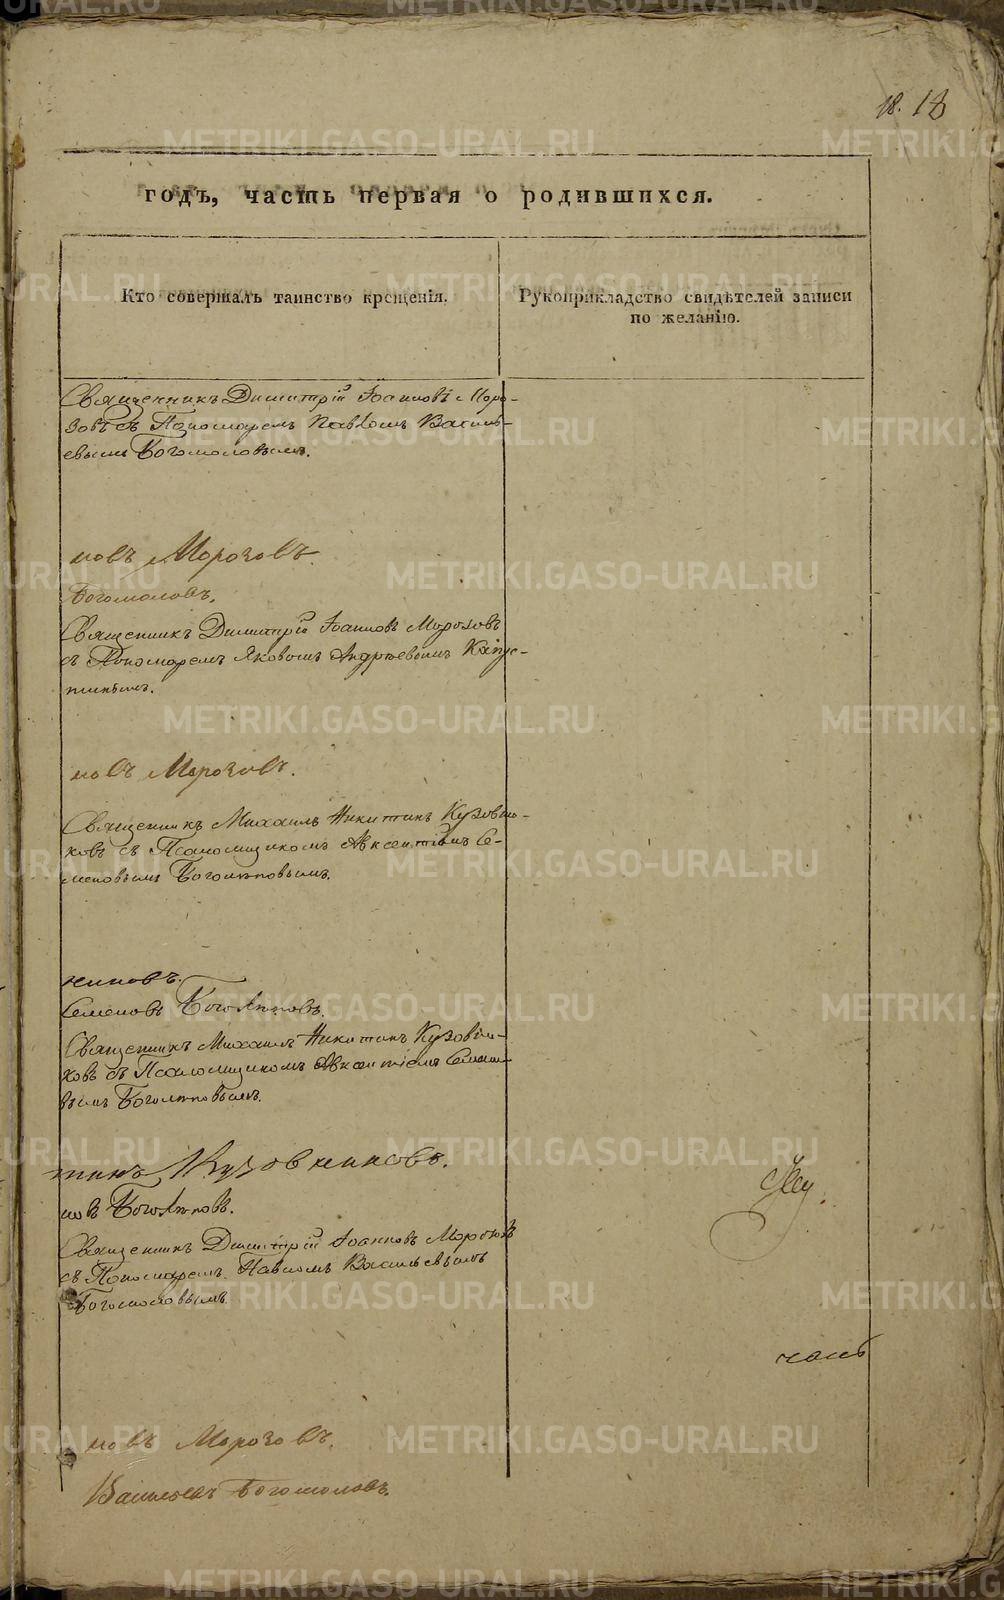 18. 18
годъ, часть первая о родившихся.
Кто совершалъ таинство крещенія.
Рукоприкладство свидѣтелей записи
по желанію.
Священникъ Димитрій Іоанновъ Моро-
зовъ съ Пономаремъ Павломъ Василь-
евымъ Богомоловымъ.
новъ Морозовъ.
Богомоловъ.
Священникъ Димитрій Іоанновъ Морозовъ
съ Пономаремъ Яковомъ Андреевымъ Капус-
тинымъ.
новъ Морозовъ.
Священникъ Михаилъ Никитинъ Кузовни-
ковъ съ Псаломщикомъ Авксентіемъ Се-
меновымъ Боголѣповымъ.
никовъ.
Семеновъ Боголѣповъ.
Священникъ Михаилъ Никитинъ Кузовни-
ковъ съ Псаломщикомъ Авксентіемъ Семено-
вымъ Боголѣповымъ.
тинъ Кузовниковъ.
новъ Боголѣповъ.
Священникъ Димитрій Іоанновъ Морозовъ
съ Пономаремъ Павломъ Васильевымъ
Богомоловымъ.
новъ Морозовъ.
Васильевъ Богомоловъ.
METRIKI.GASO-URAL.RU